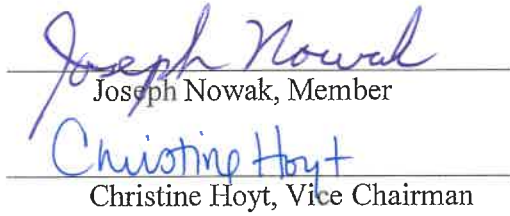 Joseph Nowak
Joseph Nowak, Member
Christine Hoyt
Christine Hoyt, Vice Chairman